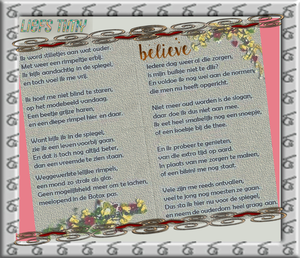 LIEFS TINY!
Ik word stilletjes aan wat ouder.
Met weer een rimpeltje erbij.
Ik kijk aandachtig in de spiegel,
en toch voel ik me vrij.

Ik hoef me niet blind te staren,
op het modebeeld vandaag.
Een beetje grijze haren,
en een diepe rimpel hier en daar.

Want kijk ik in de spiegel,
zie ik een leven voorbij gaan.
En dat is toch nog altijd beter,
dan een vreemde te zien staan.

Weggewerkte lelijke rimpels,
een mond zo strak als glas.
Geen mogelijkheid meer om te lachen,
meelopend in de Botox pas.

believe
Iedere dag weer al die zorgen,
is mijn buikje niet te dik?
En voldoe ik nog wel aan de normen
die men nu heeft opgericht.

Niet meer oud worden is de slogan,
daar doe ik dus niet aan mee.
Ik eet heel smakelijk nog een snoepje,
of een koekje bij de thee.

En ik probeer te genieten,
van die extra tijd op aard.
In plaats van me zorgen te maken,
of een bikini me nog staat.

Vele zijn me reeds ontvallen,
veel te jong nog moesten ze gaan.
Dus sta ik hier nu voor de spiegel,
en neem de ouderdom heel graag aan.